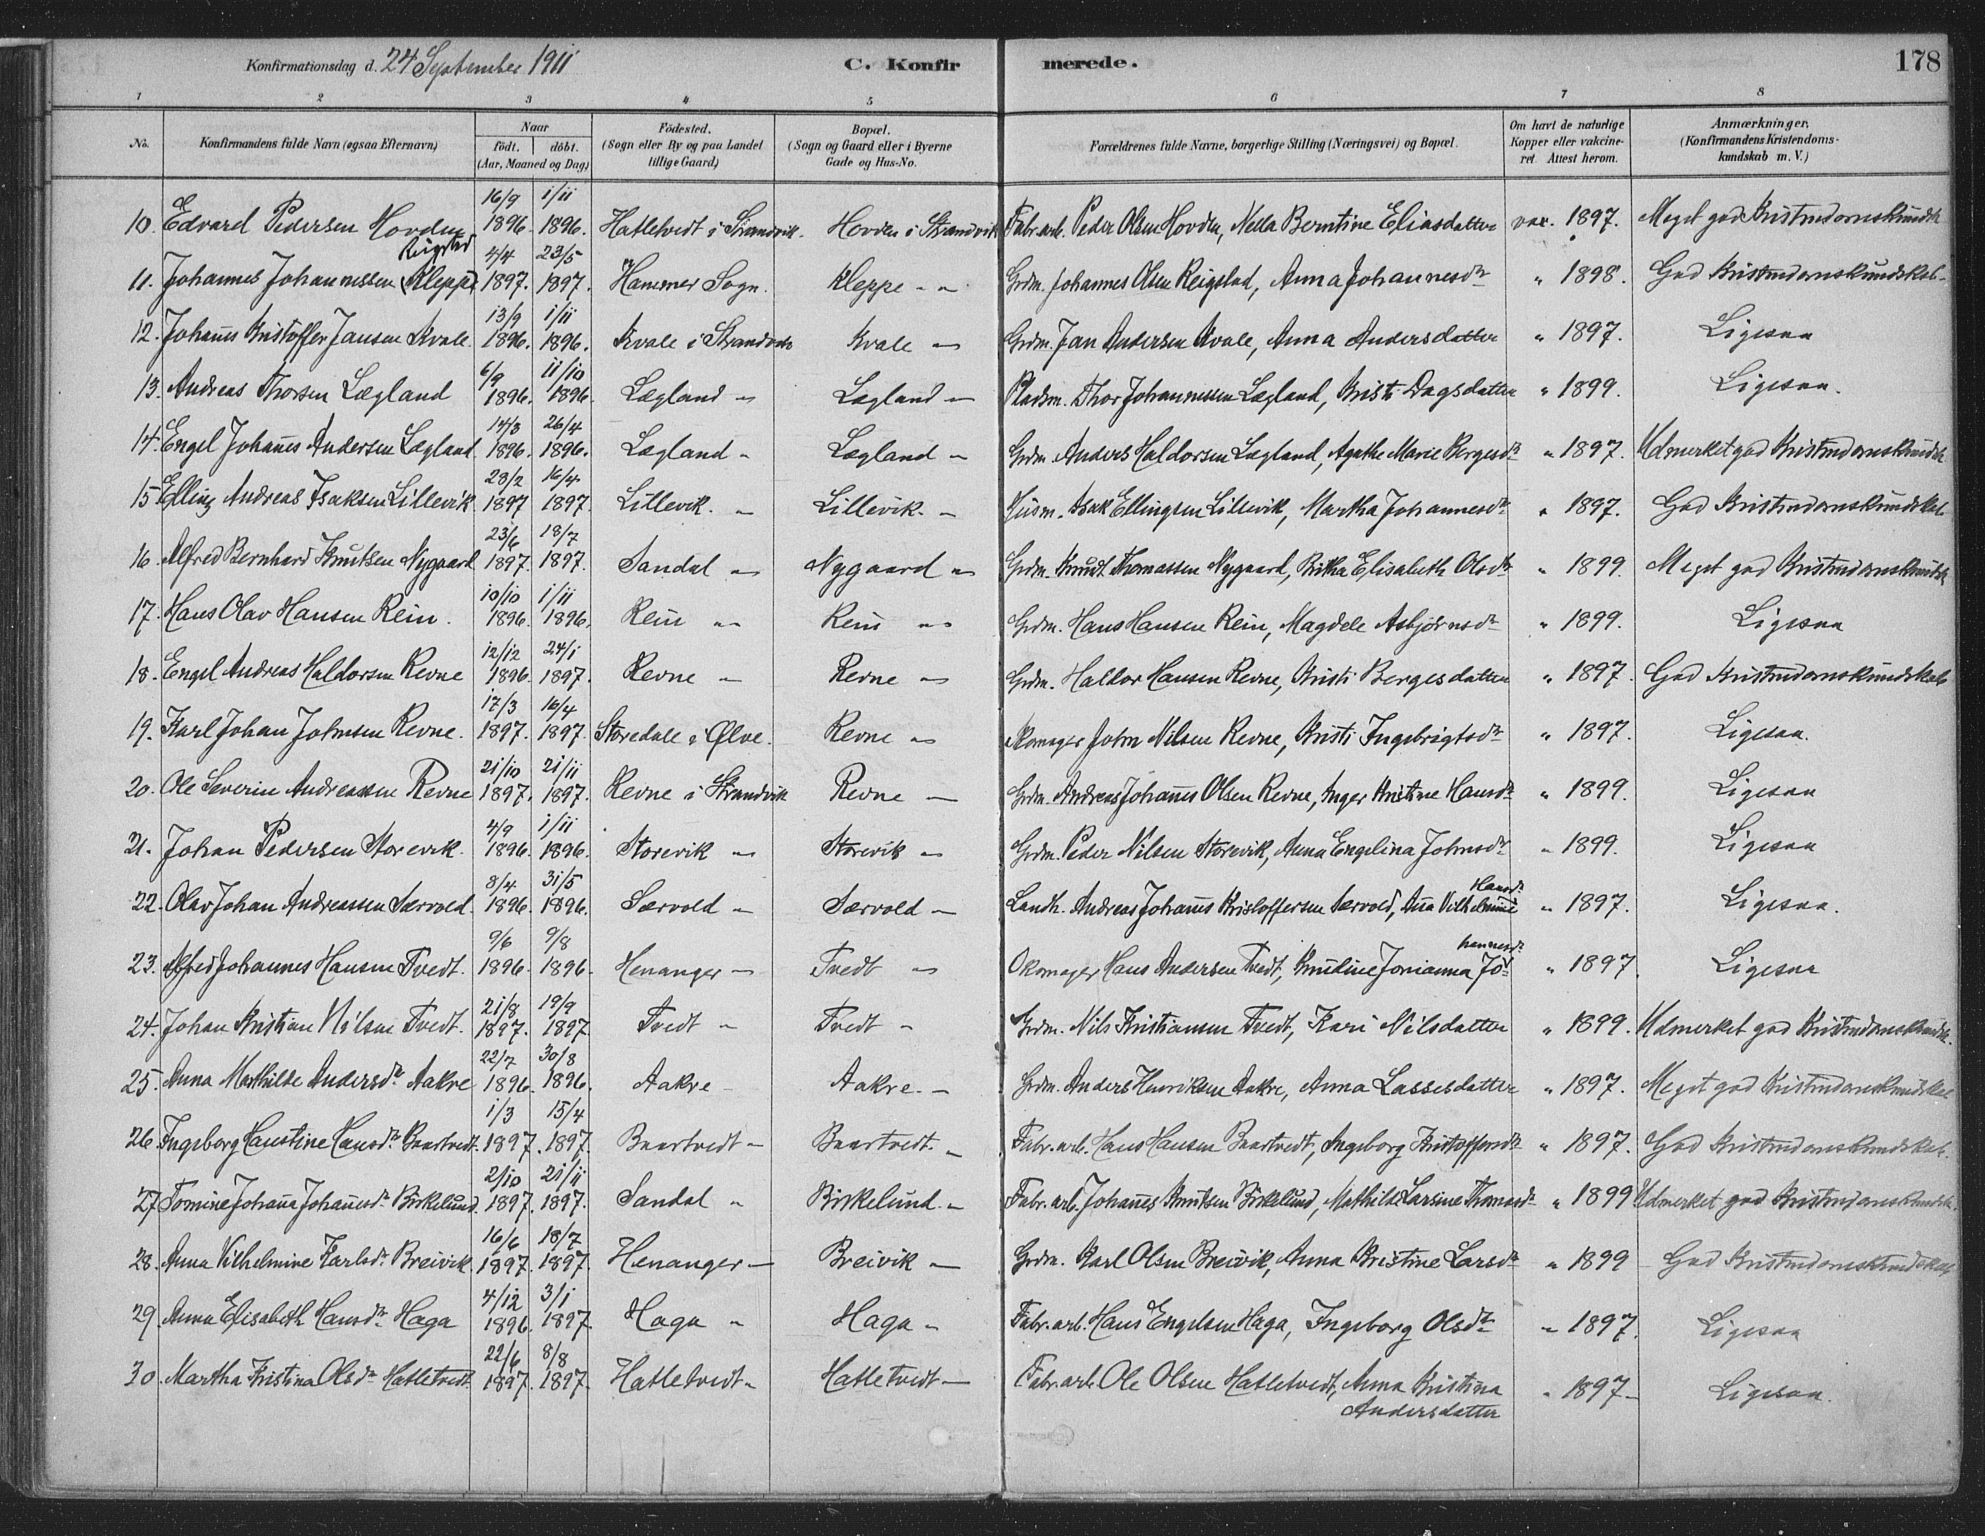 Konfirmationsdag d. 24 September 1911 C. Konfirmerede. 178
1 2 3 4 5 6 7 8
No. Konfirmandens fulde Navn (ogsaa Efternavn) Naar født. døbt. (Aar, Maaned og Dag) Fødested. (Sogn eller By og paa Landet tillige Gaard) Bopæl. (Sogn og Gaard eller i Byerne Gade og Hus-No. Forældrenes fulde Navne, borgerlige Stilling (Næringsvei) og Bopæl. Om havt de naturlige Kopper eller vakcineret. Attest herom. Anmærkninger. (Konfirmandens Kristendomskundskab m. V.)
10. Edvard Pedersen Hovden 16/9 1896. 1/11 1896. Hatletvedt i Strandvik. Hovden i Strandvik Fabr.arb. Peder Olsen Hovden, Nella Berntine Eliasdatter vax. 1897. Meget god Kristendomskundsk
11. Johannes Johannessen Reigstad (Kleppe) 4/4 1897. 23/5 1897. Hammer Sogn. Kleppe " " Grdm. Johannes Olsen Reigstad, Anna Johannesdtr " 1898. God Kristendomskundskab
12. Johans Kristoffer Jansen Kvale 13/9 1896. 1/11 1896. Kvale i Strandvik Kvale " Grdm. Jan Andersen Kvale, Anna Andersdatter " 1897. Ligesaa
13. Andreas Thorsen Lægland 6/9 1896. 11/10 1896. Lægland " Lægland " Pladsm. Thor Johannessen Lægland, Kristi Dagsdatter " 1899. Ligesaa.
14. Engel Johans Andersen Lægland 14/3 1896. 26/4 1896. Lægland " Lægland " Grdm. Anders Haldorsen Lægland, Agathe Marie Bergesdtr " 1897. Udmerket god Kristendomskundsk
15. Elling Andreas Isaksen Lillevik 28/2 1897 16/4 1897. Lillevik. " Lillevik. " Husm. Isak Ellingsen Lillevik, Martha Johannesdtr " 1897. God Kristendomskundskab
16. Alfred Bernhard Knutsen Nygaard 23/6 1897. 18/7 1897. Sandal " Nygaard " Grdm. Knut Thomassen Nygaard, Britha Elisabeth Olsdtr " 1899. Meget god Kristendomskundsk
17. Hans Olav Hansen Rein. 10/10 1896. 1/11 1896. Rein " Rein " Grdm. Hans Hansen Rein, Magdele Asbjørnsdtr " 1899. Ligesaa
18. Engel Andreas Haldorsen Revne 12/12 1896. 24/1 1897. Revne " Revne " Grdm. Haldor Hansen Revne, Kristi Bergesdatter " 1897. God Kristendomskundskab
19. Karl Johan Johnsen Revne. 17/3 1897. 16/4 1897. Storedale i Ølve. Revne " Skomager John Nilsen Revne, Kristi Ingebrigtsdtr " 1897. Ligesaa.
20. Ole Severin Andreassen Revne 21/10 1897. 21/11 1897. Revne i Strandvik Revne " Grdm. Andreas Johans Olsen Revne, Inger Kristine Hansdtr " 1899. Ligesaa
21. Johan Pedersen Storevik. 4/9 1896. 1/11 1896. Storevik " Storevik " Grdm. Peder Nilsen Storevik, Anna Engelina Johnsdtr " 1899. Ligesaa
22. Olav Johan Andreassen Særvold. 8/4 1896. 31/5 1896. Særvold " Særvold " Landh. Andreas Johans Kristoffersen Særvold, Ana Vilhelmine Hansdtr " 1897. Ligesaa.
23. Alfred Johannes Hansen Tvedt. 9/6 1896. 9/8 1896. Henanger " Tvedt " Skomager Hans Andersen Tvedt, Knudine Jorianna Johannesdtr " 1897 Ligesaa
24. Johan Kristian Nilsen Tvedt. 21/8 1897. 19/9 1897 Tvedt " Tvedt " Grdm. Nils Kristiansen Tvedt, Kari Nilsdatter " 1899. Udmerket god Kristendomskundsk.
25. Anna Mathilde Andersdtr Aakre 22/7 1896. 30/8 1896. Aakre " Aakre. " Grdm. Anders Henriksen Aakre, Anna Lassesdatter " 1897. Meget god Kristendomskundskab
26. Ingeborg Haustine Hansdtr Baartvedt. 1/3 1897. 15/4 1897. Baartvedt " Baartvedt. " Fabr.arb. Hans Hansen Baartvedt, Ingeborg Kristoffersdtr " 1897. God Kristendomskundskab.
27. Tomine Johana Johansdtr Birkelund. 2/10 1897. 21/11 1897. Sandal " Birkelund. " Fabr.arb. Johans Knutsen Birkelund, Mathilde Larsine Thomasdtr " 1899 Udmerket god Kristendomskundsk.
28. Anna Vilhelmine Karlsdtr Breivik 16/6 1897. 18/7 1897. Henanger " Breivik " Grdm. Karl Olsen Breivik, Anna Kristine Larsdtr " 1899 God Kristendomskundskab
29. Anna Elisabeth Hansdtr Haga 4/12 1896. 3/1 1897. Haga " Haga " Fabr.arb. Hans Engelsen Haga, Ingeborg Olsdtr " 1897. Ligesaa
30. Martha Kristina Olsdtr Hatletvedt 22/6 1897. 8/8 1897. Hatletvedt " Hatletvedt " Fabr.arb. Ole Olsen Hatletvedt, Anna Kristina Andersdatter " 1897 Ligesaa.